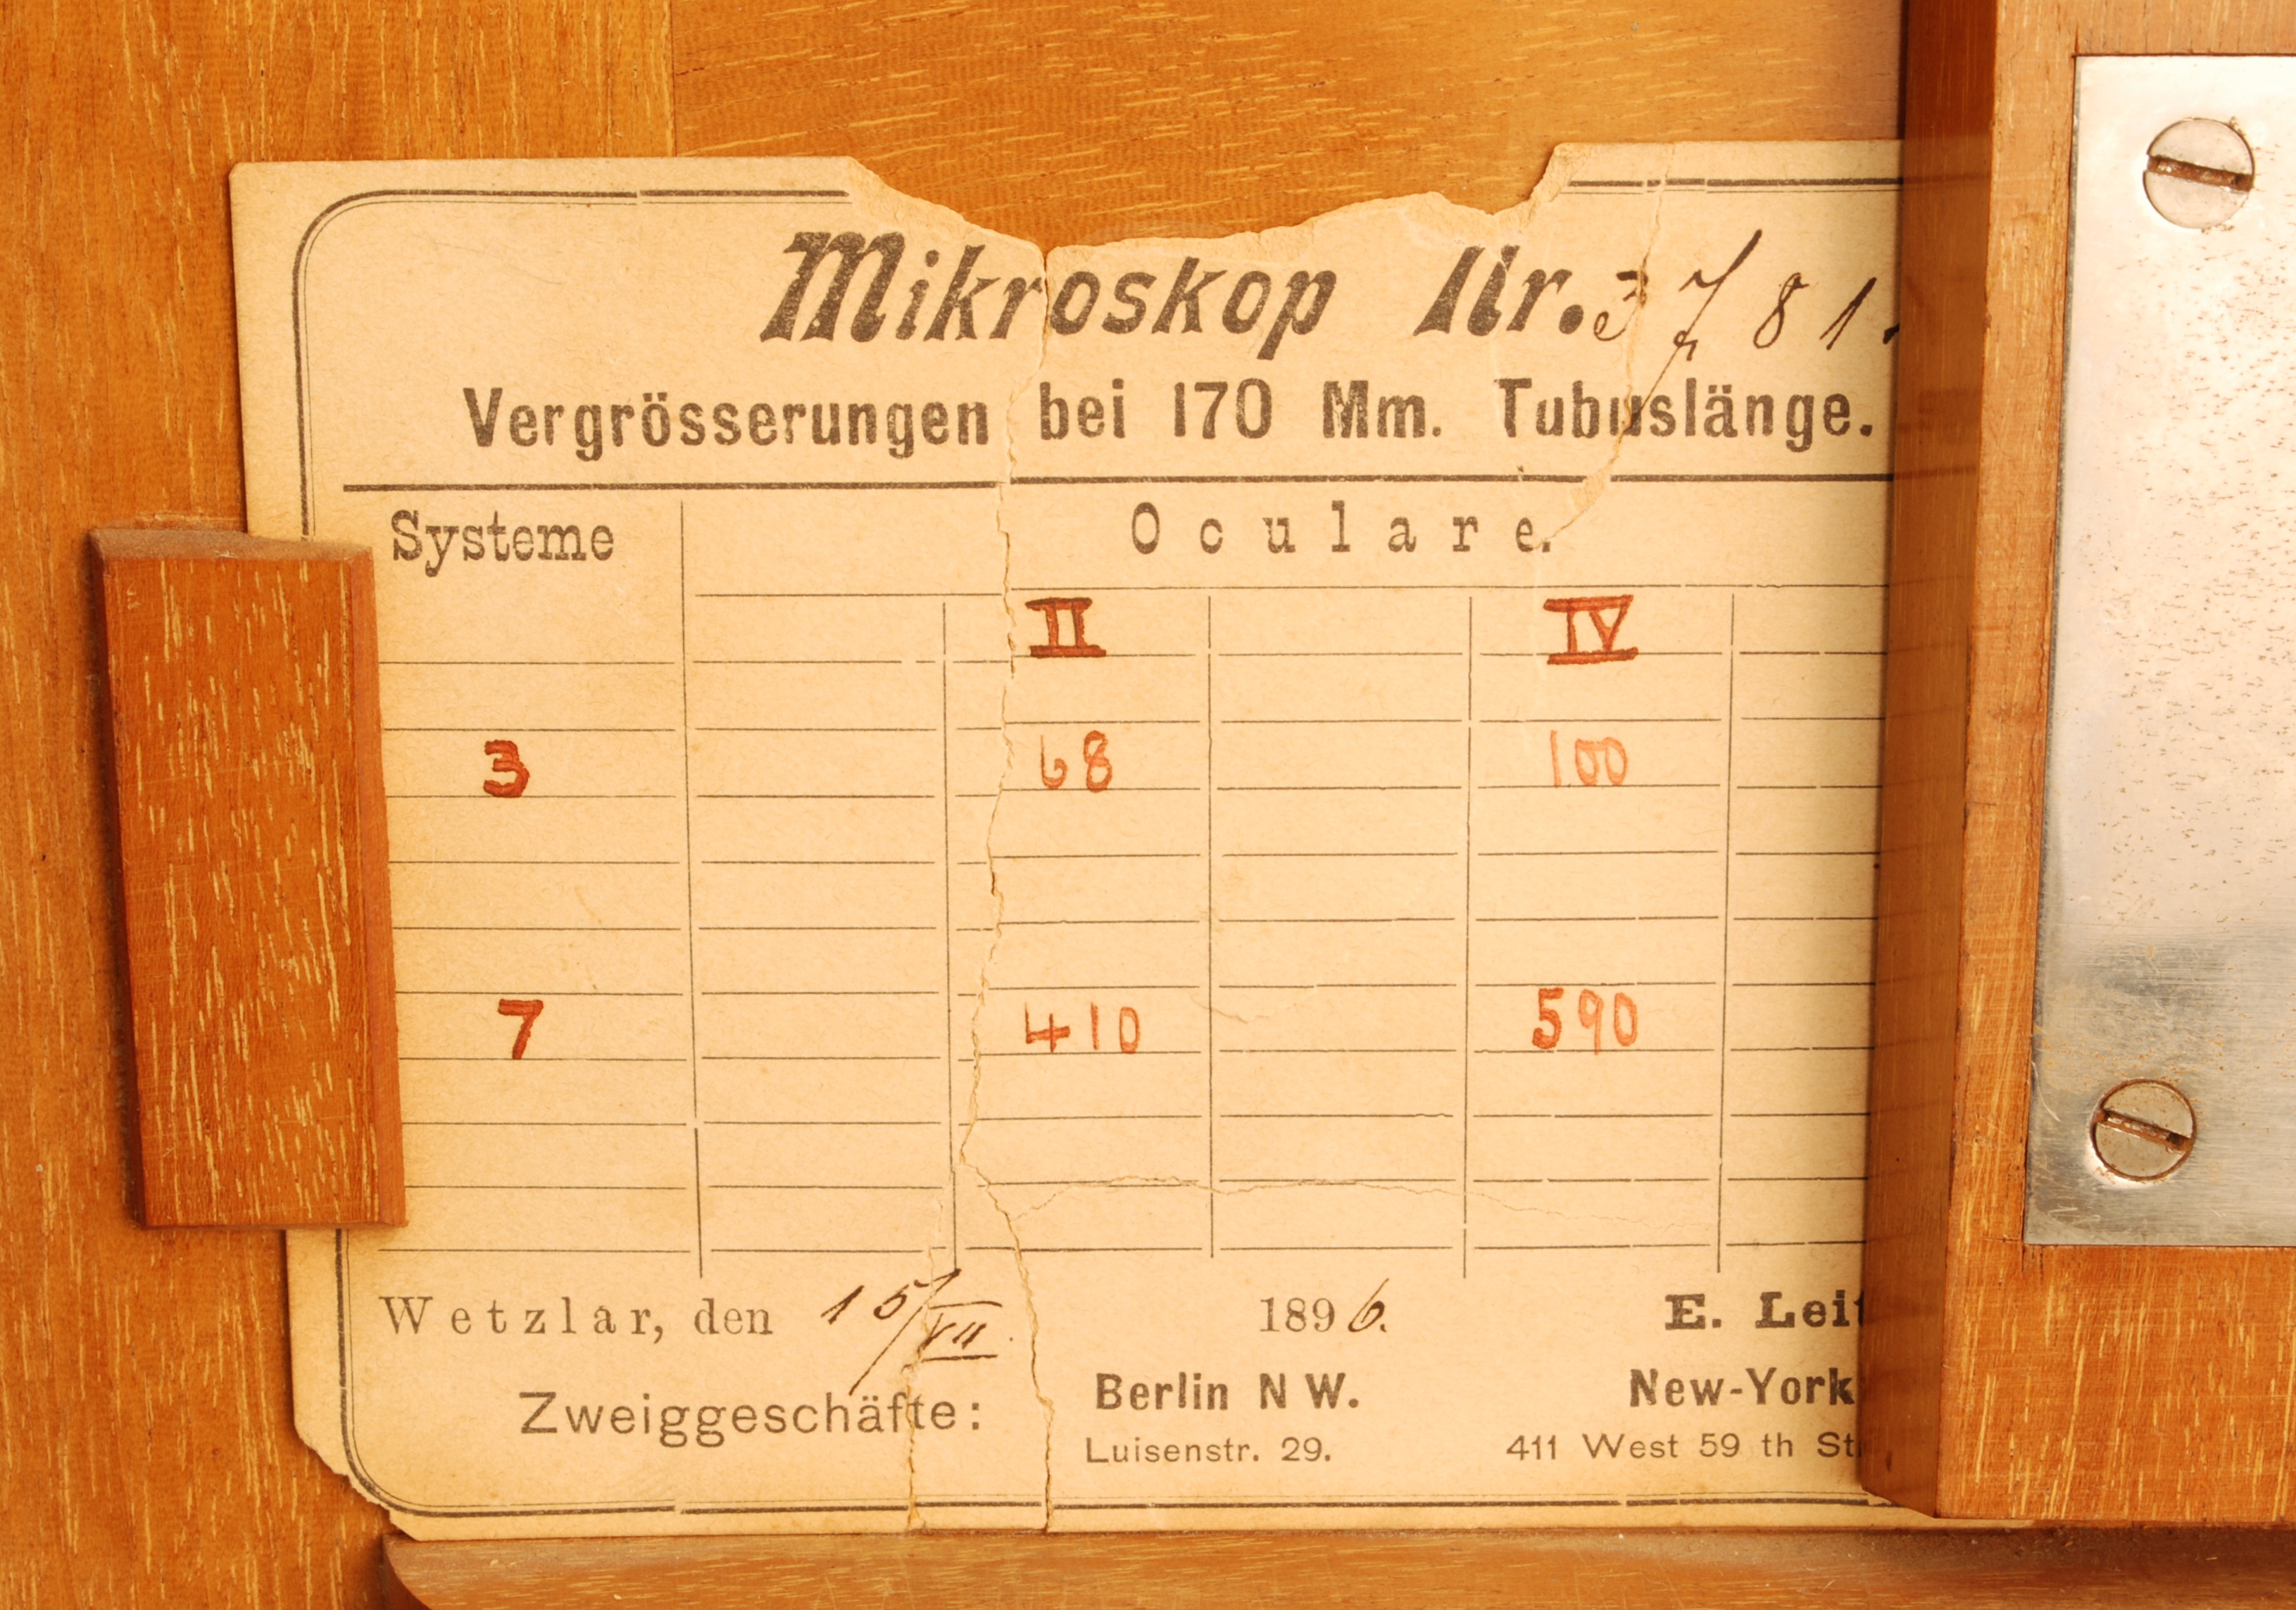 Mikroskop Nr. 3781.
Vergrösserungen bei 170 Mm. Tubuslänge.
Systeme Oculare.
II IV
3 68 100
7 410 590
Wetzlar, den 15/VII. 1896. E. Leit
Zweiggeschäfte: Berlin N W. New-York
Luisenstr. 29. 411 West 59 th St